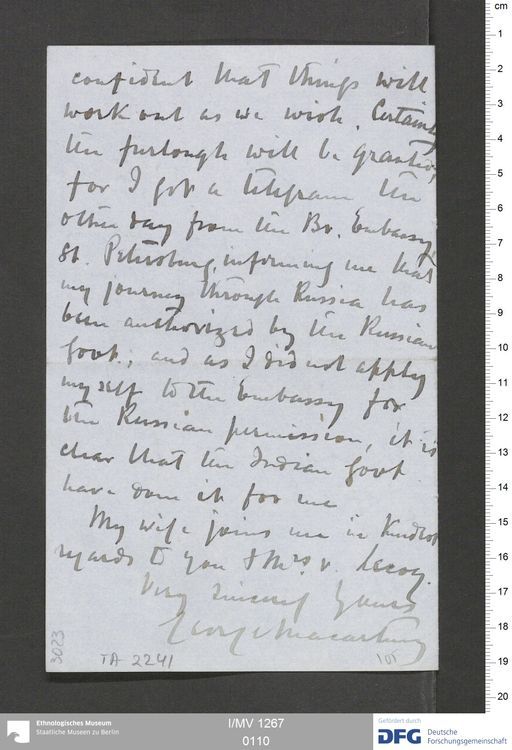 confident that things will
work out as we wish. Certainly
the furlough will be granted,
for I got a telegram the
other day from the Br. Embassy
St. Petersburg, informing me that
my journey through Russia has
been authorized by the Russian
Govt.; and as I did not apply
myself to the Embassy for
the Russian permission, it is
clear that the Indian Govt
have done it for me
My wife joins me in kindest
regards to you & Mrs. v. Lecoq.
Very sincerely Yours
George Macartney
3023
TA 2241
101
cm
1
2
3
4
5
6
7
8
9
10
11
12
13
14
15
16
17
18
19
20
Ethnologisches Museum
Staatliche Museen zu Berlin
I/MV 1267
0110
Gefördert durch
DFG Deutsche
Forschungsgemeinschaft